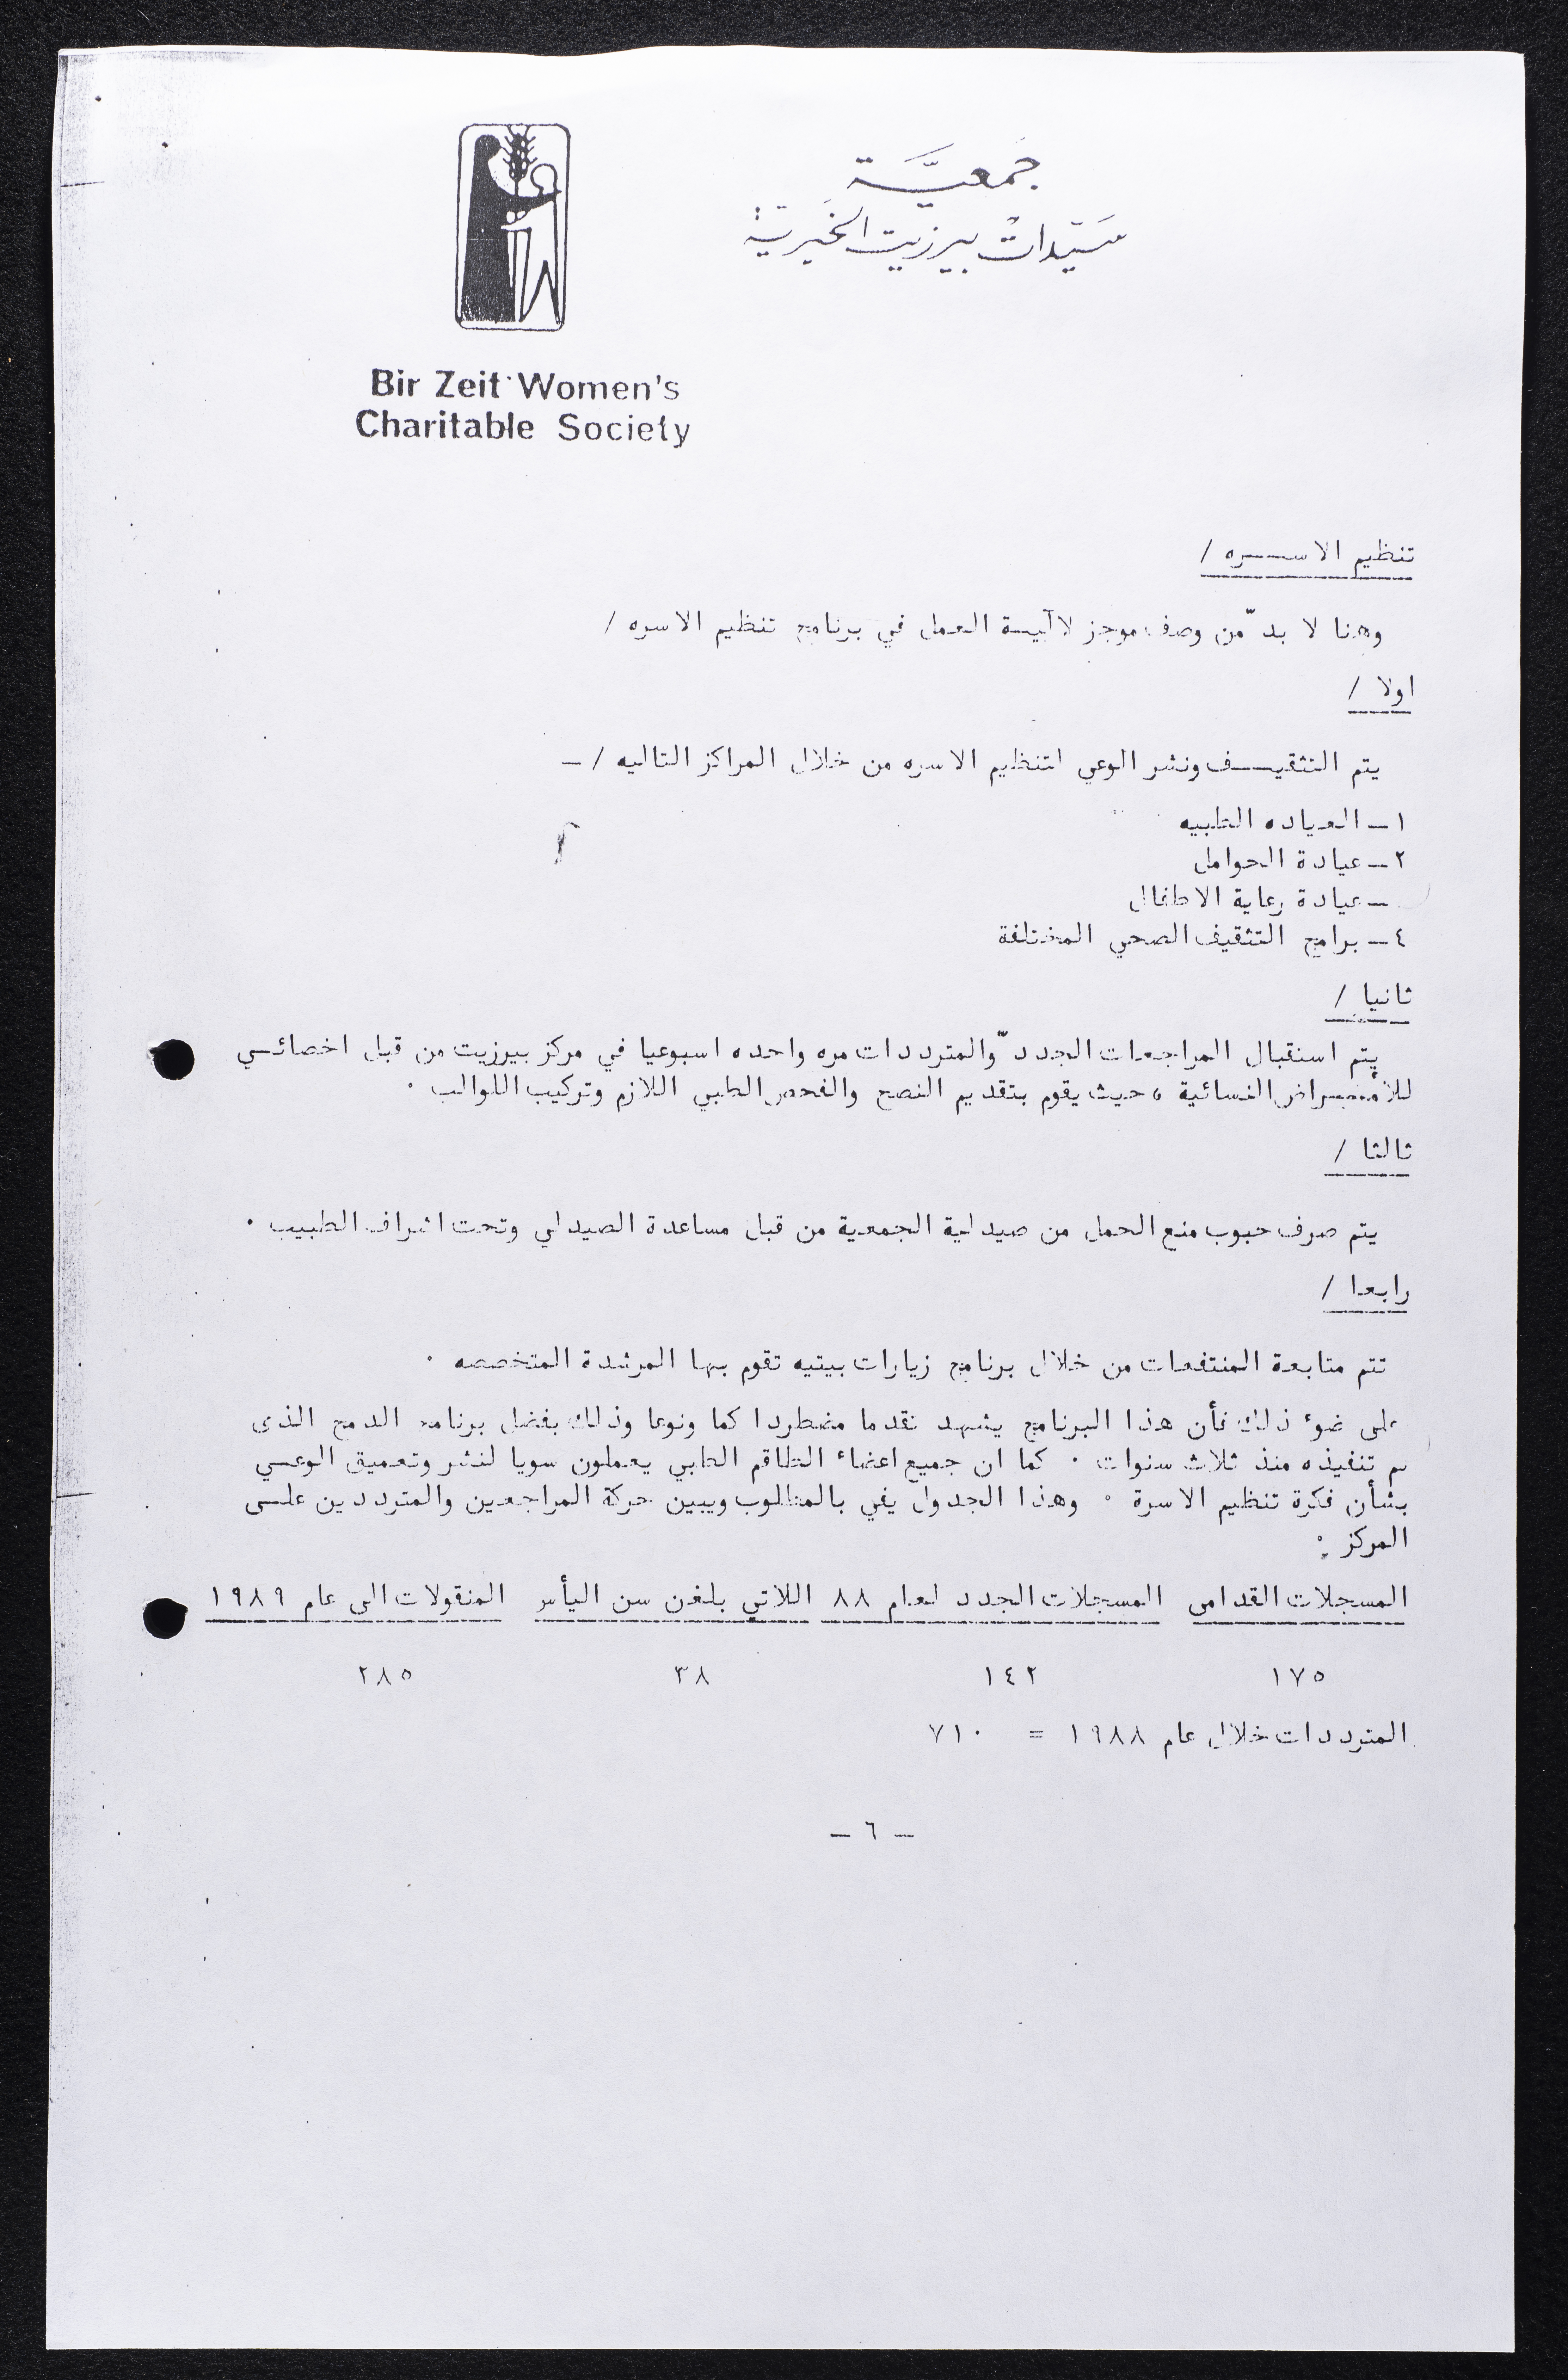 جمعية
سيدات بيرزيت الخيرية
Bir Zeit Women's
Charitable Society
تنظيم الاسره /
وهنا لا بد من وصف موجز لآلية العمل في برنامج تنظيم الاسره /
اولا /
يتم التثقيف ونشر الوعي لتنظيم الاسره من خلال المراكز التاليه / -
١ - العياده الطبيه
٢ - عيادة الحوامل
- عيادة رعاية الاطفال
٤ - برامج التثقيف الصحي المختلفة
ثانيا /
يتم استقبال المراجعات الجدد والمترددات مره واحده اسبوعيا في مركز بيرزيت من قبل اخصائي
للأمراض النسائية ، حيث يقوم بتقديم النصح والفحص الطبي اللازم وتركيب اللوالب .
ثالثا /
يتم صرف حبوب منع الحمل من صيدلية الجمعية من قبل مساعدة الصيدلي وتحت اشراف الطبيب .
رابعا /
تتم متابعة المنتفعات من خلال برنامج زيارات بيتيه تقوم بها المرشدة المتخصصه .
على ضوء ذلك فأن هذا البرنامج يشهد تقدما مضطردا كما ونوعا وذلك بفضل برنامج الدمج الذى
تم تنفيذه منذ ثلاث سنوات . كما ان جميع اعضاء الطاقم الطبي يعملون سويا لنشر وتعميق الوعي
بشأن فكرة تنظيم الاسرة . وهذا الجدول يفي بالمطلوب ويبين حركة المراجعين والمترددين على
المركز :
المسجلات القدامى المسجلات الجدد لعام ٨٨ اللاتي بلغن سن اليأس المنقولات الى عام ١٩٨٩
١٧٥ ١٤٢ ٣٨ ٢٨٥
المترددات خلال عام ١٩٨٨ = ٧١٠
- ٦ -